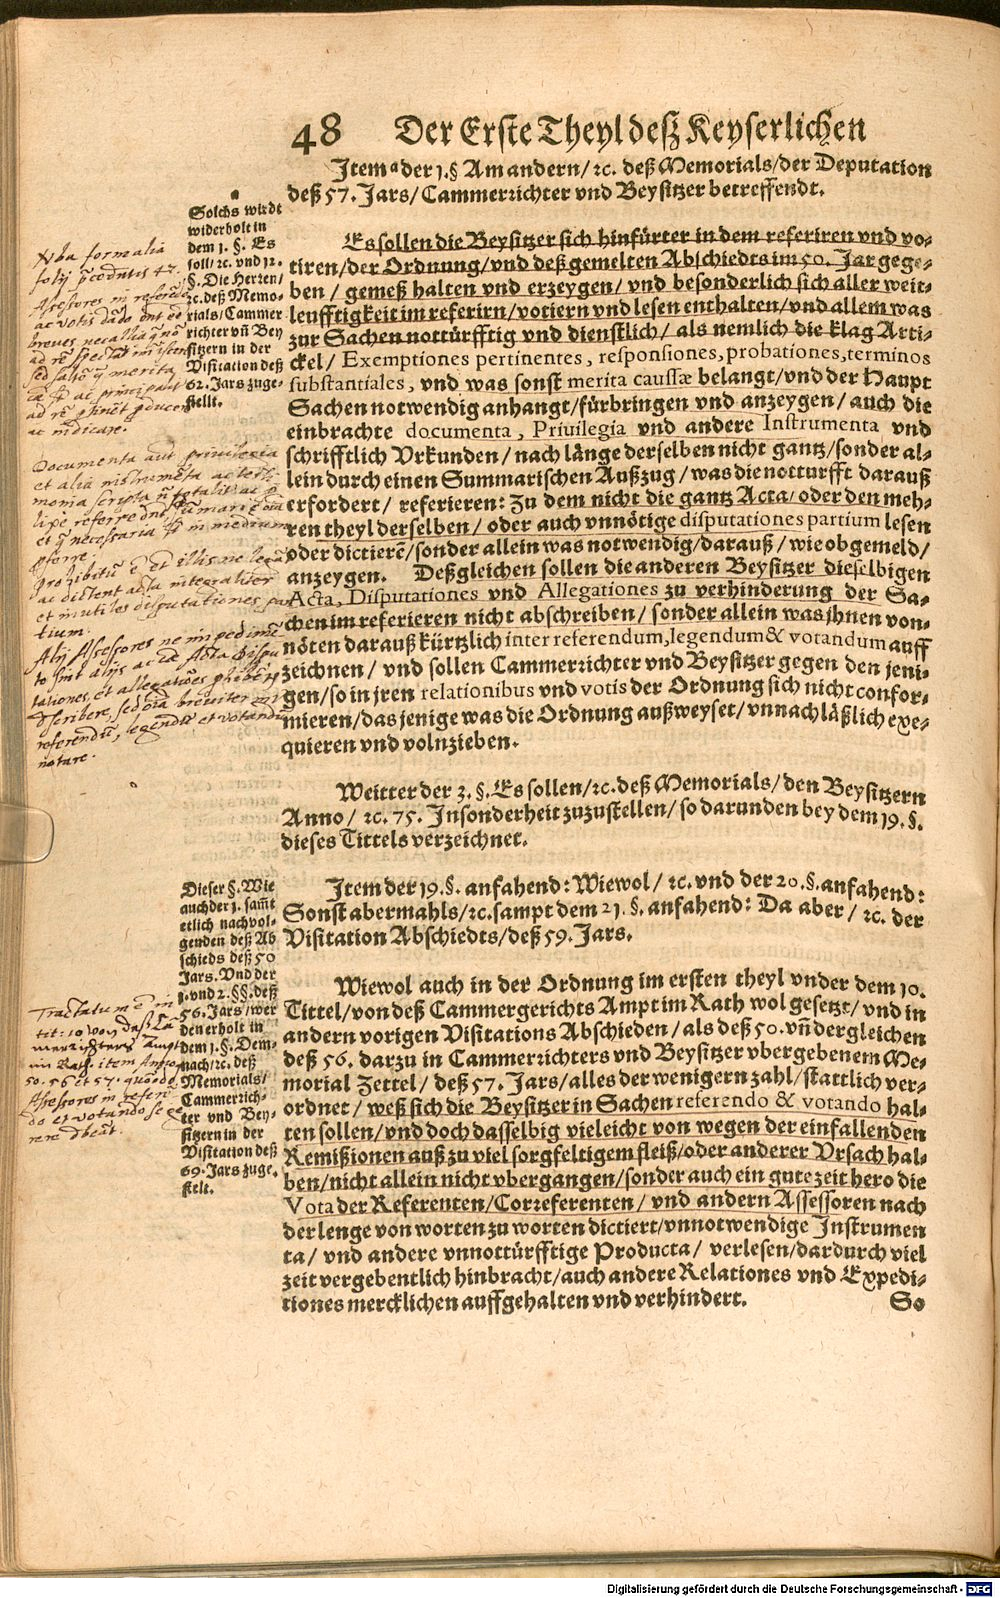 48 Der Erste Theyl deß Keyserlichen
Item a der 1. § Am andern / ꝛc. deß Memorials / der Deputation
deß 57. Jars / Cammerrichter vnd Beysitzer betreffendt.
a
Solchs wirdt
widerholt in
dem 1. §. Es
soll / ꝛc. vnd 12.
§. Die Herren /
ꝛc. deß Memo-
rials / Cammer
richter vñ Bey
sitzern in der
Visitation deß
62. Jars zuge-
stellt.
Es sollen die Beysitzer sich hinfürter in dem referiren vnd vo-
tiren / der Ordnung / vnd deß gemelten Abschiedts im 50. Jar gege-
ben / gemeß halten vnd erzeygen / vnd besonderlich sich aller weit-
leufftigkeit im referirn / votiern vnd lesen enthalten / vnd allem was
zur Sachen nottürfftig vnd dienstlich / als nemlich die klag Arti-
ckel / Exemptiones pertinentes, responsiones, probationes, terminos
substantiales, vnd was sonst merita caussæ belangt / vnd der Haupt
Sachen notwendig anhangt / fürbringen vnd anzeygen / auch die
einbrachte documenta, Priuilegia vnd andere Instrumenta vnd
schrifftlich Vrkunden / nach länge derselben nicht gantz / sonder al-
lein durch einen Summarischen Außzug / was die notturfft darauß
erfordert / referieren: Zu dem nicht die gantz Acta / oder den meh-
ren theyl derselben / oder auch vnnötige disputationes partium lesen
oder dictierẽ / sonder allein was notwendig / darauß / wie obgemeld /
anzeygen. Deßgleichen sollen die anderen Beysitzer dieselbigen
Acta, Disputationes vnd Allegationes zu verhinderung der Sa-
chen im referieren nicht abschreiben / sonder allein was jhnen von-
nöten darauß kürtzlich inter referendum, legendum & votandum auff
zeichnen / vnd sollen Cammerrichter vnd Beysitzer gegen den jeni-
gen / so in jren relationibus vnd votis der Ordnung sich nicht confor-
mieren / das jenige was die Ordnung außweyset / vnnachläßlich exe-
quieren vnd volnzieben.
Weitter der 3. §. Es sollen / ꝛc. deß Memorials / den Beysitzern
Anno / ꝛc. 75. Insonderheit zuzustellen / so darunden bey dem 19. §.
dieses Tittels verzeichnet.
Item der 19. §. anfahend: Wiewol / ꝛc. vnd der 20. §. anfahend:
Sonst abermahls / ꝛc. sampt dem 21. §. anfahend: Da aber / ꝛc. der
Visitation Abschiedts / deß 59. Jars.
Dieser §. Wie
auch der 1. sam̃t
etlich nachvol-
genden deß Ab
schieds deß 50
Jars. Vnd der
1. vnd 2. §§. deß
56. Jars / wer
den erholt in
dem 1. §. Dem-
nach / ꝛc. deß
Memorials /
Cammerrich-
ter vnd Bey-
sitzern in der
Visitation deß
69. Jars zuge
stelt.
Wiewol auch in der Ordnung im ersten theyl vnder dem 10.
Tittel / von deß Cammergerichts Ampt im Rath wol gesetzt / vnd in
andern vorigen Visitations Abschieden / als deß 50. vñ dergleichen
deß 56. darzu in Cammerrichters vnd Beysitzer vbergebenem Me-
morial Zettel / deß 57. Jars / alles der wenigern zahl / stattlich ver-
ordnet / weß sich die Beysitzer in Sachen referendo & votando hal-
ten sollen / vnd doch dasselbig vieleicht von wegen der einfallenden
Remißionen auß zu viel sorgfeltigem fleiß / oder anderer Vrsach hal-
ben / nicht allein nicht vbergangen / sonder auch ein gute zeit hero die
Vota der Referenten / Correferenten / vnd andern Assessoren nach
der lenge von worten zu worten dictiert / vnnotwendige Instrumen
ta / vnd andere vnnottürfftige Producta / verlesen / dardurch viel
zeit vergebentlich hinbracht / auch andere Relationes vnd Expedi-
tiones mercklichen auffgehalten vnd verhindert.
So
Documenta aut privilegia
et alia
et inutiles disputationes par
tium.
Alij Assessores ne
referendũ, legendũ et votandũ
notare.
Digitalisierung gefördert durch die Deutsche Forschungsgemeinschaft - DFG